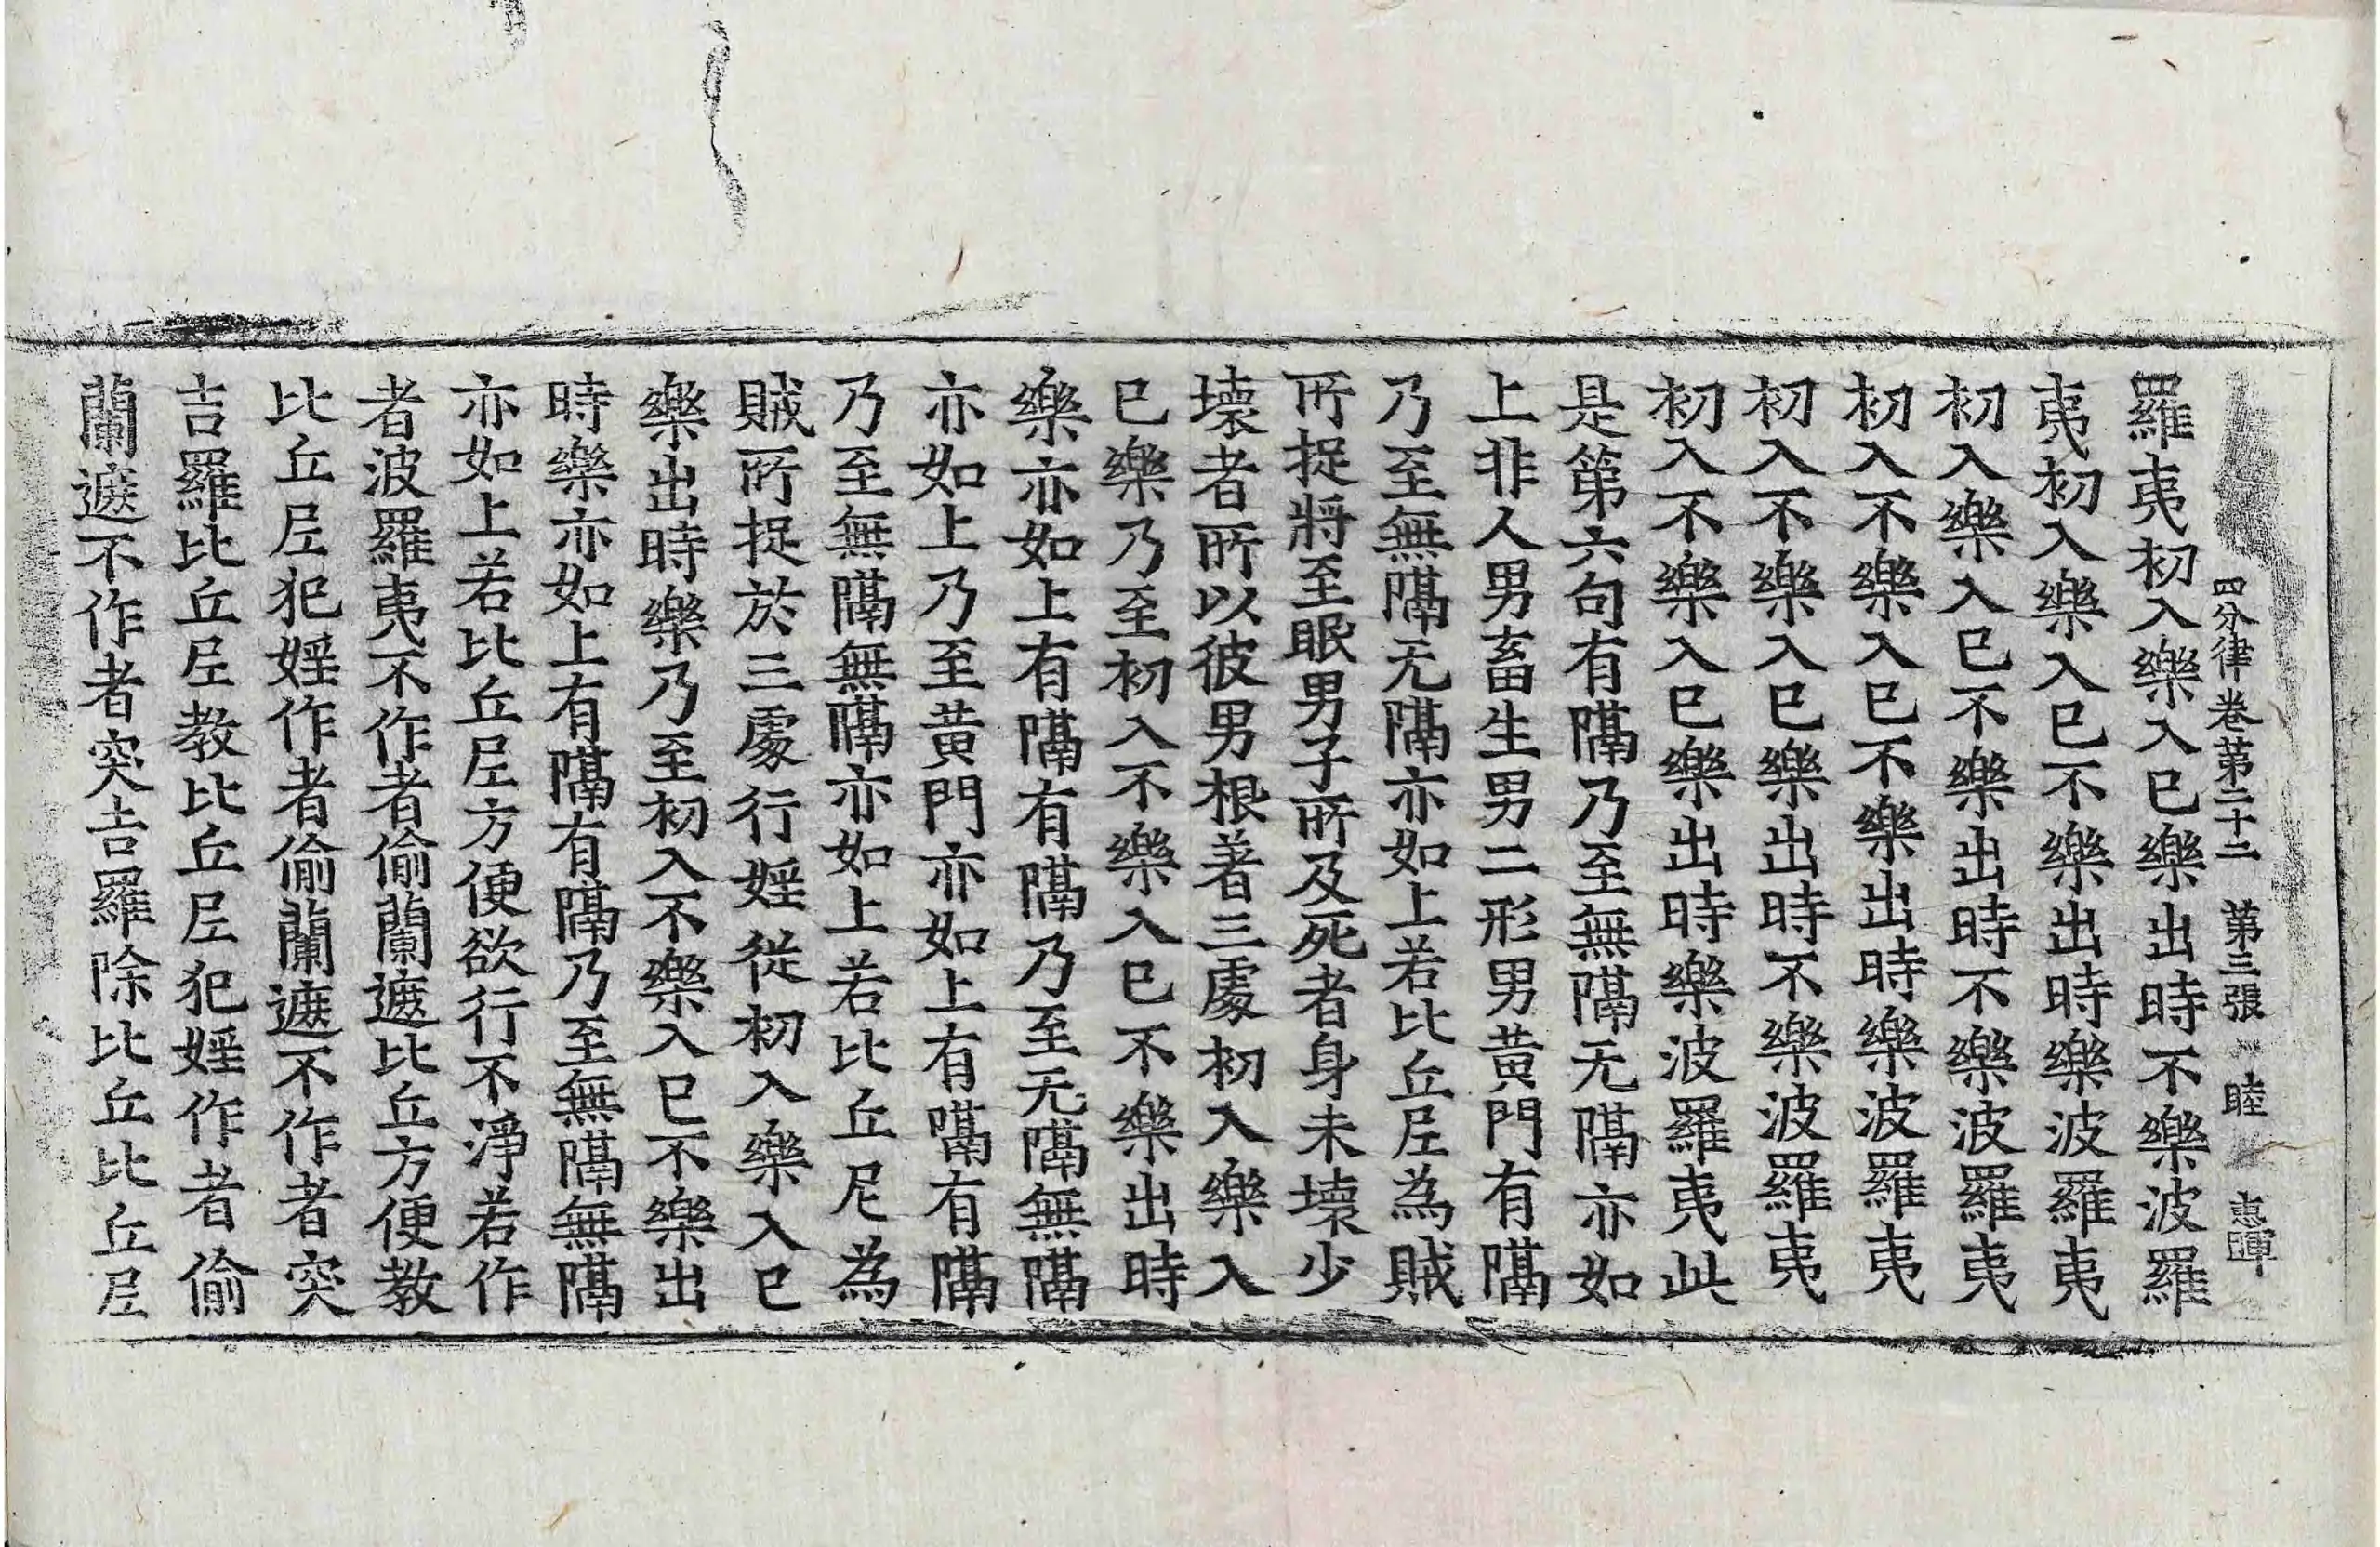 四分律卷第二十二 第三張 睦 惠暉
羅夷初入樂入已樂出時不樂波羅
夷初入樂入已不樂出時樂波羅夷
初入樂入已不樂出時不樂波羅夷
初入不樂入已不樂出時樂波羅夷
初入不樂入已樂出時不樂波羅夷
初入不樂入已樂出時樂波羅夷此
是第六句有隔乃至無隔无隔亦如
上非人男畜生男二形男黃門有隔
乃至無隔无隔亦如上若比丘𡰱為賊
所捉將至眠男子所及死者身未壞少
壞者所以彼男根著三處初入樂入
已樂乃至初入不樂入已不樂出時
樂亦如上有隔有隔乃至无隔無隔
亦如上乃至黃門亦如上有隔有隔
乃至無隔無隔亦如上若比丘尼為
賊所捉於三處行婬從初入樂入已
樂出時樂乃至初入不樂入已不樂出
時樂亦如上有隔有隔乃至無隔無隔
亦如上若比丘𡰱方便欲行不淨若作
者波羅夷不作者偷蘭遮比丘方便教
比丘𡰱犯婬作者偷蘭遮不作者突
吉羅比丘𡰱教比丘𡰱犯婬作者偷
蘭遮不作者突吉羅除比丘比丘𡰱